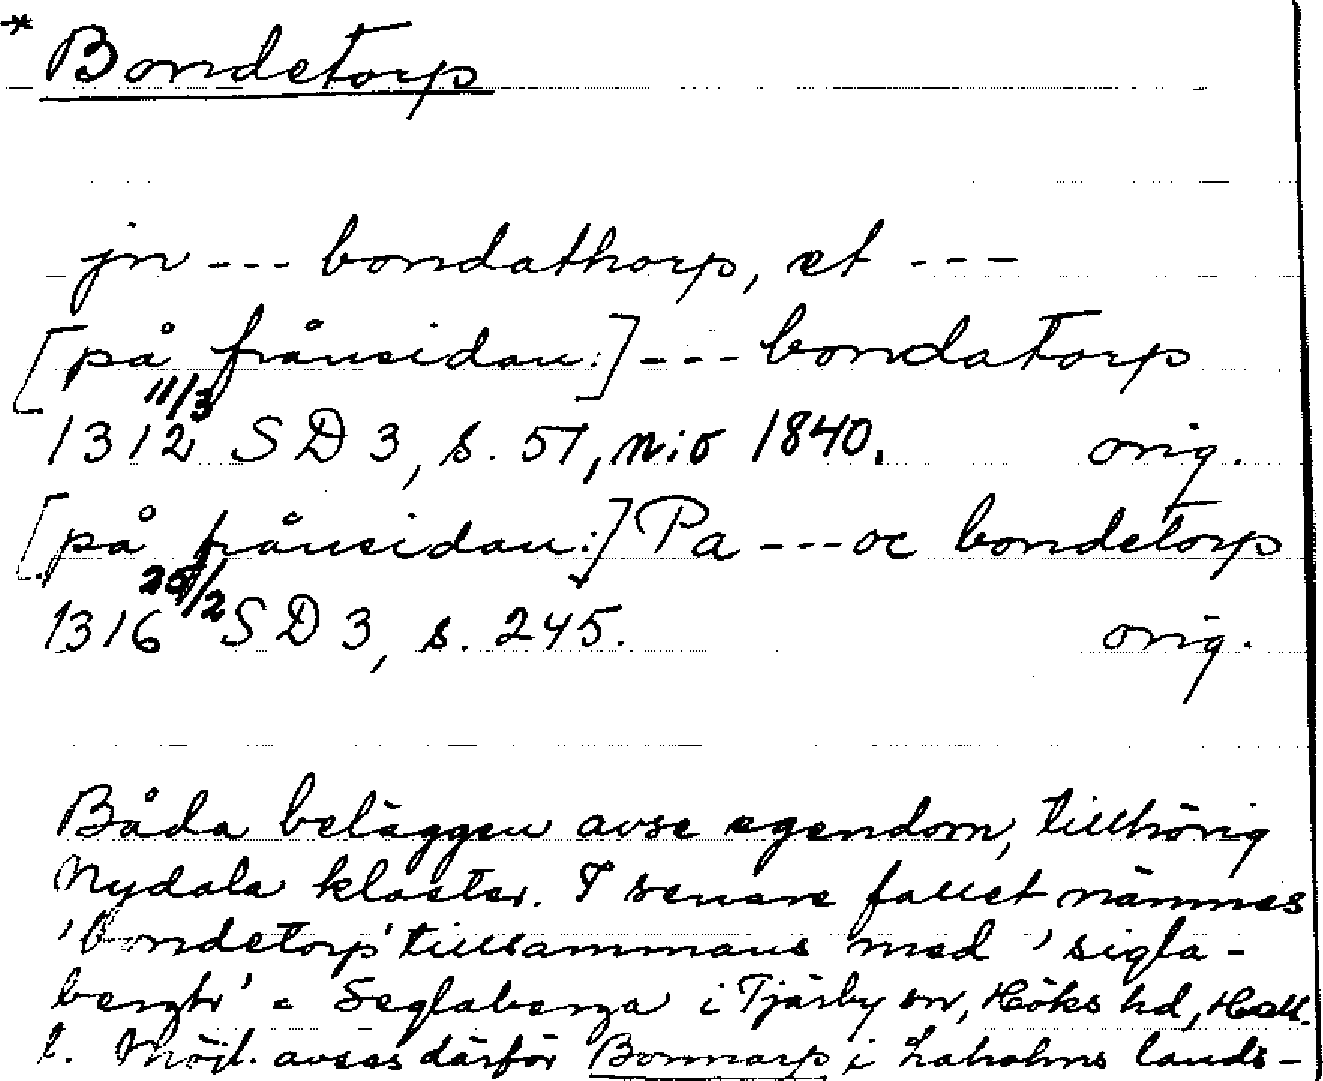 * Bondetorp
jn --- bondathorp, et ---
[på frånsidan:] --- bondatorp
1312 11/3 SD 3, s. 57, n:o 1840. orig.
[på frånsidan:] Pa --- oc bondetorp
1316 /2 SD 3, s. 245. orig.
Båda beläggen avse egendom, tillhörig
Nydala kloster. I senare fallet nämnes
'bondetorp' tillsammans med 'sigla-
bergh' = Seglaberga i Tjärby sn, Höks hd, Hall.
l. Möjl. avses därför Bonnarp i Laholms lands-